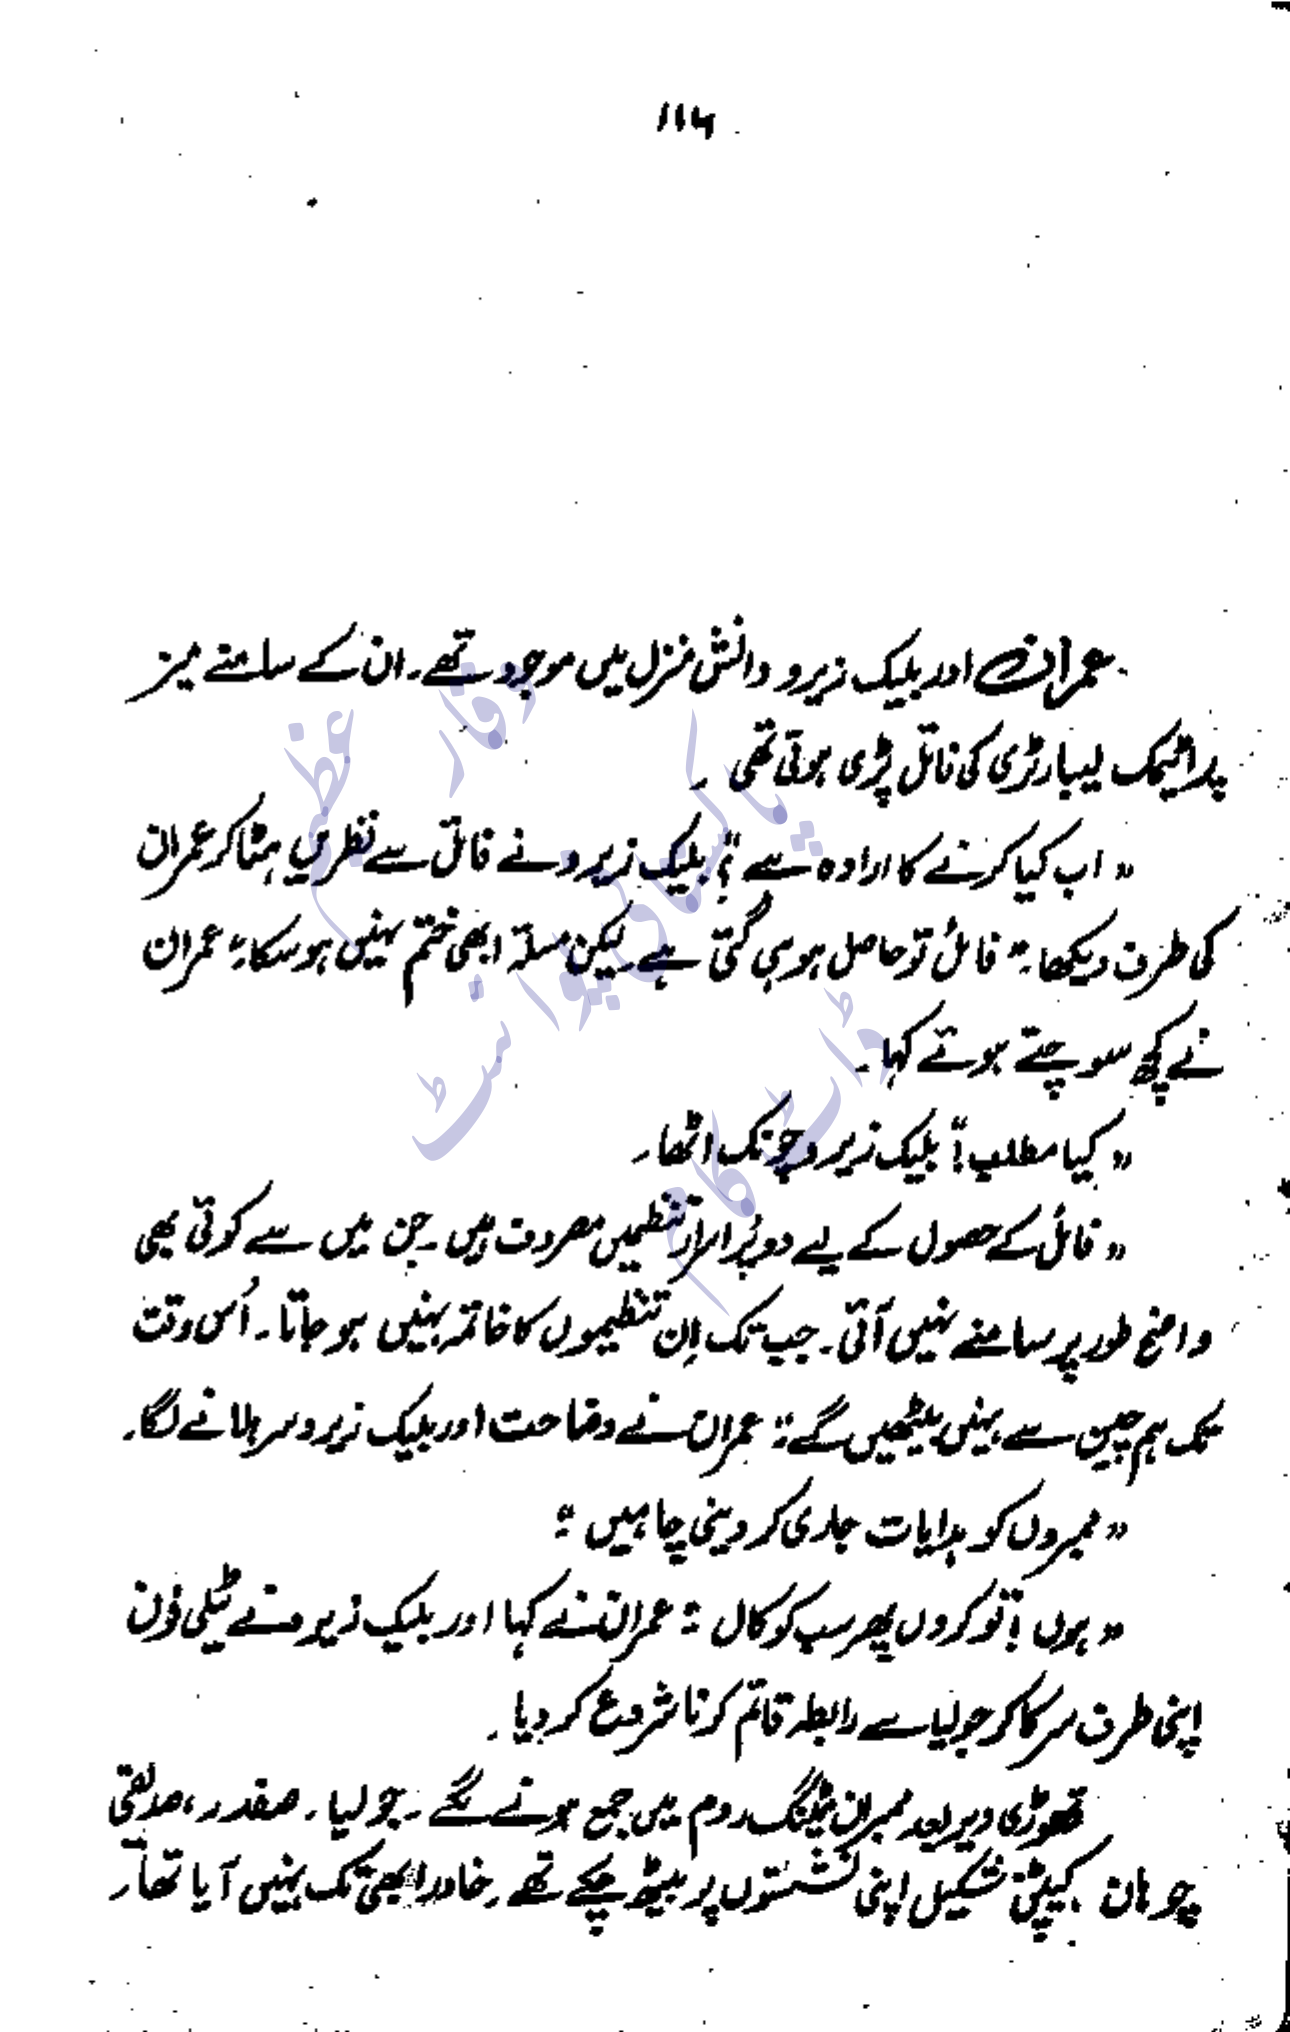 ۱۱۶
عمران اور بلیک زیرو دانش منزل میں موجود تھے۔ ان کے سامنے میز
پر اٹیمک لیبارٹری کی فائل پڑی ہوئی تھی ۔
" اب کیا کرنے کا ارادہ ہے ؟" بلیک زیرو نے فائل سے نظریں ہٹا کر عمران
کی طرف دیکھا ۔" فائل تو حاصل ہو ہی گئی ہے لیکن مسئلہ ابھی ختم نہیں ہو سکا ۔" عمران
نے کچھ سوچتے ہوئے کہا ۔
" کیا مطلب ؟" بلیک زیرو چونک اٹھا ۔
" فائل کے حصول کے لیے دو پُراسرار تنظیمیں مصروف ہیں ۔ جن میں سے کوئی بھی
واضح طور پر سامنے نہیں آئی ۔ جب تک اِن تنظیموں کا خاتمہ نہیں ہو جاتا ۔ اُس وقت
تک ہم چین سے نہیں بیٹھیں گے ۔" عمران نے وضاحت اور بلیک زیرو سر ہلانے لگا ۔
" ممبروں کو ہدایات جاری کر دینی چاہئیں ۔"
" ہوں ! تو کروں پھر سب کو کال ۔" عمران نے کہا اور بلیک زیرو نے ٹیلی فون
اپنی طرف سرکا کر جولیا سے رابطہ قائم کرنا شروع کر دیا ۔
تھوڑی دیر بعد ممبران میٹنگ روم میں جمع ہونے لگے ۔ جولیا ۔ صفدر ، صدیقی
چوہان ، کیپٹن شکیل اپنی نشستوں پر بیٹھ چکے تھے ۔ خاور ابھی تک نہیں آیا تھا ۔
وقار عظیم
پاکستانی پوائنٹ
ڈاٹ کام